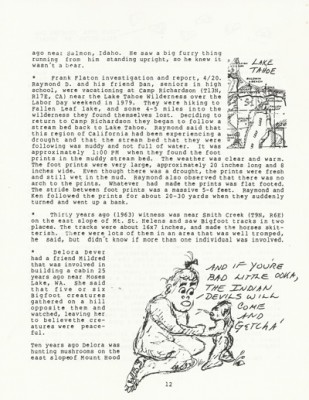 ago near Salmon, Idaho. He saw a big furry thing
running from him standing upright, so he knew it
wasn't a bear.
* Frank Flaton investigation and report, 4/20.
Raymond D. and his friend Dan, seniors in high
school, were vacationing at Camp Richardson (T13N,
R17E, CA) near the Lake Tahoe Wilderness over the
Labor Day weekend in 1979. They were hiking to
Fallen Leaf lake, and some 4-5 miles into the
wilderness they found themselves lost. Deciding to
return to Camp Richardson they began to follow a
stream bed back to Lake Tahoe. Raymond said that
this region of California had been experiencing a
drought and that the stream bed that they were
following was muddy and not full of water. It was
approximately 1:00 PM when they found the foot
prints in the muddy stream bed. The weather was clear and warm.
The foot prints were very large, approximately 20 inches long and 8
inches wide. Even though there was a drought, the prints were fresh
and still wet in the mud. Raymond also observed that there was no
arch to the prints. Whatever had made the prints was flat footed.
The stride between foot prints was a massive 5-6 feet. Raymond and
Dan followed the prints for about 20-30 yards when they suddenly
turned and went up a bank.
* Thirty years ago (1963) witness was near Smith Creek (T9N, R6E)
on the east slope of Mt. St. Helens and saw Bigfoot tracks in two
places. The tracks were about 16x7 inches, and made the horses skit-
terish. There were lots of them in an area that was well tromped,
he said, but didn't know if more than one individual was involved.
* Delora Dever
had a friend Mildred
that was involved in
building a cabin 25
years ago near Moses
Lake, WA. She said
that five or six
Bigfoot creatures
gathered on a hill
opposite them and
watched, leaving her
to believethe cre-
atures were peace-
ful.
Two years ago Delora was
hunting mushrooms on the
east slopeof Mount Hood
LAKE
TAHOE
AND IF YOU'RE
BAD LITTLE OOKA,
THE INDIAN
DEVILS WILL
COME
AND
GETCHA!
12